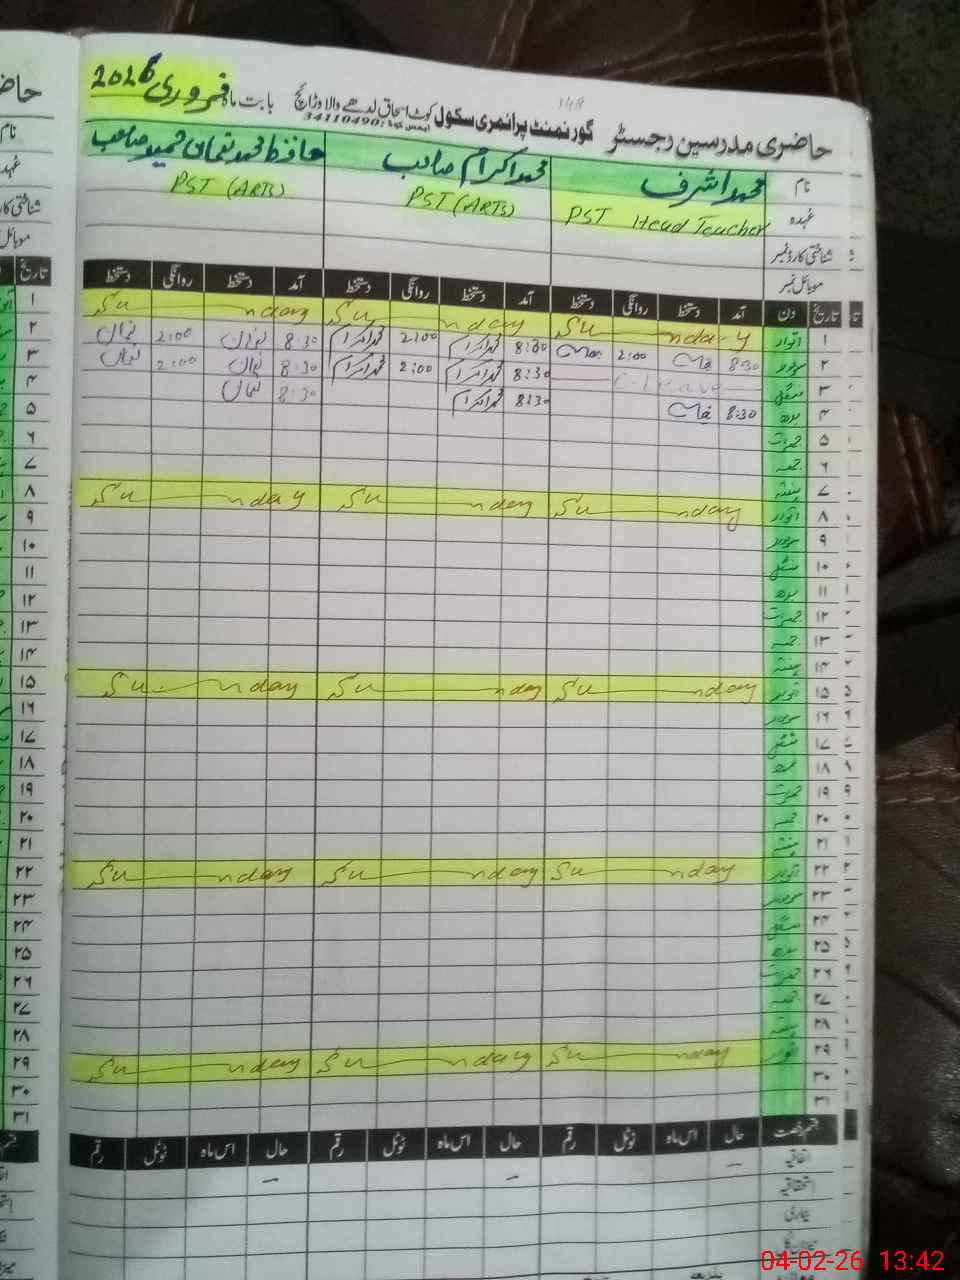 حاضری مدرسین رجسٹر گورنمنٹ پرائمری سکول کوٹ اسحاق لدھے والا وڑائچ بابت ماہ فروری 2026
34110490
148
نام محمد اشرف محمد اکرام صاحب حافظ محمد نعمان حمید صاحب
عہدہ PST Head Teacher PST (ARTS) PST (ARTS)
شناختی کارڈ نمبر
موبائل نمبر
تاریخ دن آمد دستخط روانگی دستخط آمد دستخط روانگی دستخط آمد دستخط روانگی دستخط
۱ اتوار Sunday Sunday Sunday
۲ سوموار 8:30 2:00 8:00 محمد اکرام 2:00 محمد اکرام 8:30 نعمان 2:00 نعمان
۳ منگل C-leave 8:30 محمد اکرام 2:00 محمد اکرام 8:30 نعمان 2:00 نعمان
۴ بدھ 8:30 8:30 محمد اکرام 8:30 نعمان
۵ جمعرات
۶ جمعہ
۷ ہفتہ
۸ اتوار Sunday Sunday Sunday
۹ سوموار
۱۰ منگل
۱۱ بدھ
۱۲ جمعرات
۱۳ جمعہ
۱۴ ہفتہ
۱۵ اتوار Sunday Sunday Sunday
۱۶ سوموار
۱۷ منگل
۱۸ بدھ
۱۹ جمعرات
۲۰ جمعہ
۲۱ ہفتہ
۲۲ اتوار Sunday Sunday Sunday
۲۳ سوموار
۲۴ منگل
۲۵ بدھ
۲۶ جمعرات
۲۷ جمعہ
۲۸ ہفتہ
۲۹ اتوار Sunday Sunday Sunday
۳۰
۳۱
قسم رخصت حال اس ماہ ٹوٹل رقم حال اس ماہ ٹوٹل رقم حال اس ماہ ٹوٹل رقم
اتفاقیہ
استحقاقیہ
بیماری
04-02-26 13:42